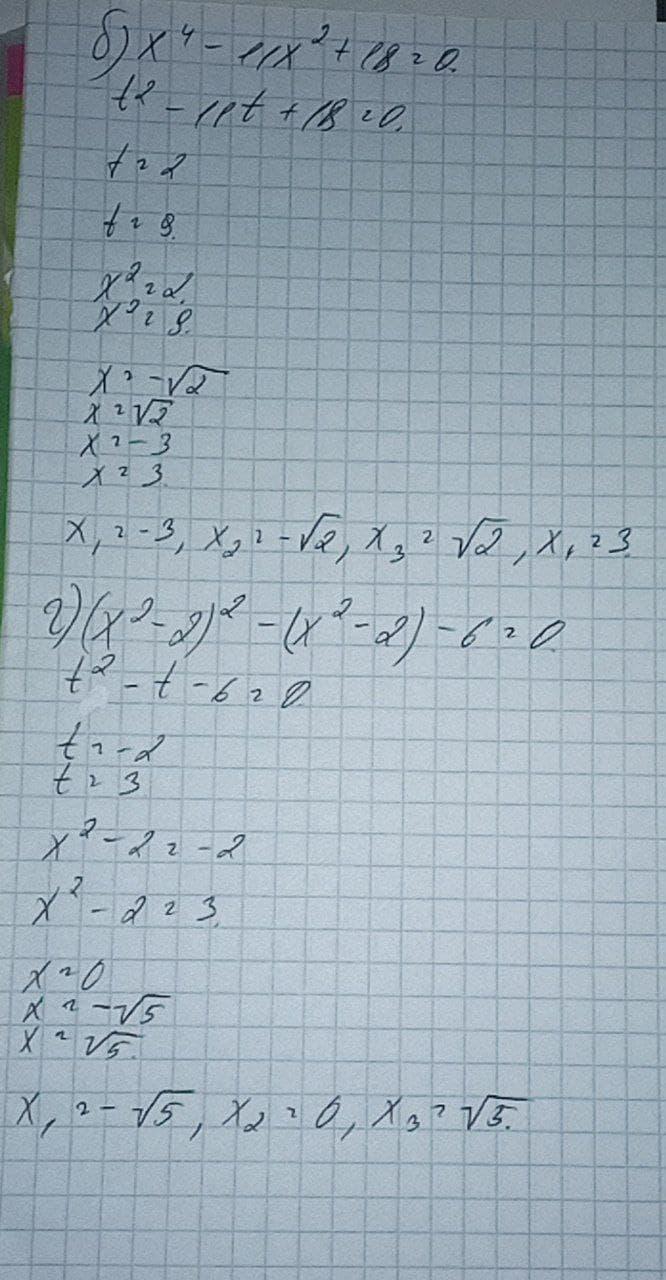 б) x⁴ - 11x² + 18 = 0.
t² - 11t + 18 = 0.
t = 2
t = 9.
x² = 2.
x² = 9.
x = -√2
x = √2
x = -3
x = 3.
x₁ = -3, x₂ = -√2, x₃ = √2, x₁ = 3.
г) (x² - 2)² - (x² - 2) - 6 = 0
t² - t - 6 = 0
t = -2
t = 3
x² - 2 = -2
x² - 2 = 3.
x = 0
x = -√5
x = √5.
x₁ = -√5, x₂ = 0, x₃ = √5.